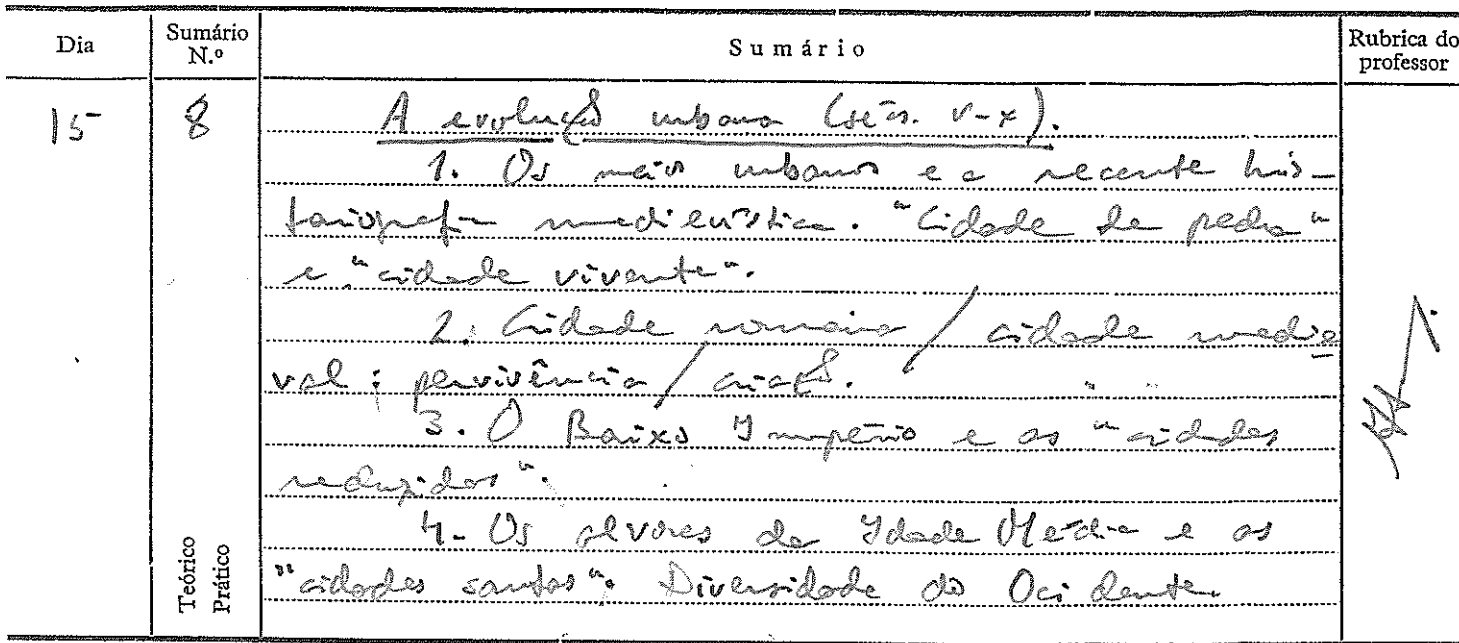 Dia Sumário N.º Sumário Rubrica do professor
15 8 A evolução urbana (sécs. V-X).
1. Os meios urbanos e a recente his-
toriografia medievística. "Cidade de pedra"
e "cidade vivente".
2. Cidade romana / cidade medie
val: pervivência / criação.
3. O Baixo Império e as "cidades
reduzidas".
4. Os alvores da Idade Média e as
"cidades santas". Diversidade do Ocidente.
Teórico
Prático